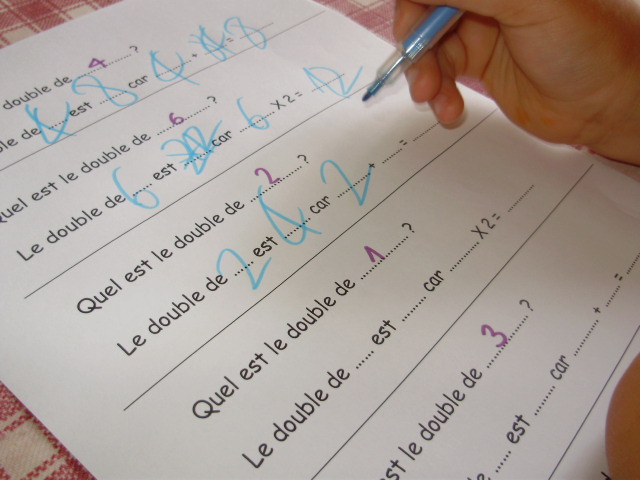 double de 4 ?
le de 4 est 8 car 4 + 4 = 8
Quel est le double de 6 ?
Le double de 6 est 12 car 6 X 2 = 12
Quel est le double de 2 ?
Le double de 2 est 4 car 2 + ...... =
Quel est le double de 1 ?
Le double de ...... est ........ car .......... X 2 =
est le double de 3 ?
le de ...... est ........ car .......... + ........ =